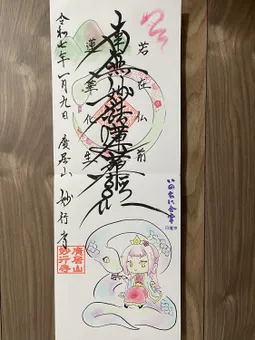 若在仏前
南無妙法蓮華経
蓮華化生
令和七年一月九日
廣居山 妙行寺
いのちに合掌
廣居山
妙行寺